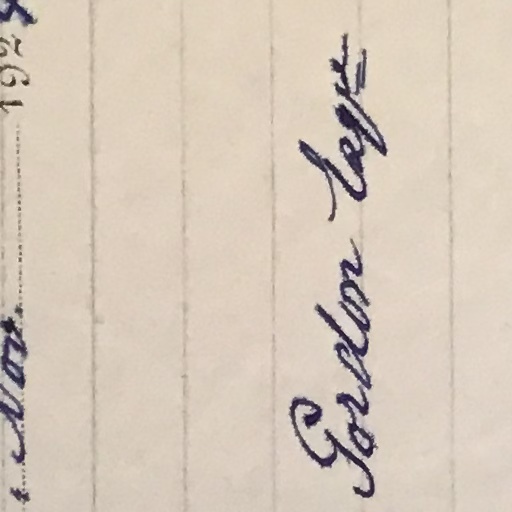 Nov. 1924
Gordon Esqre